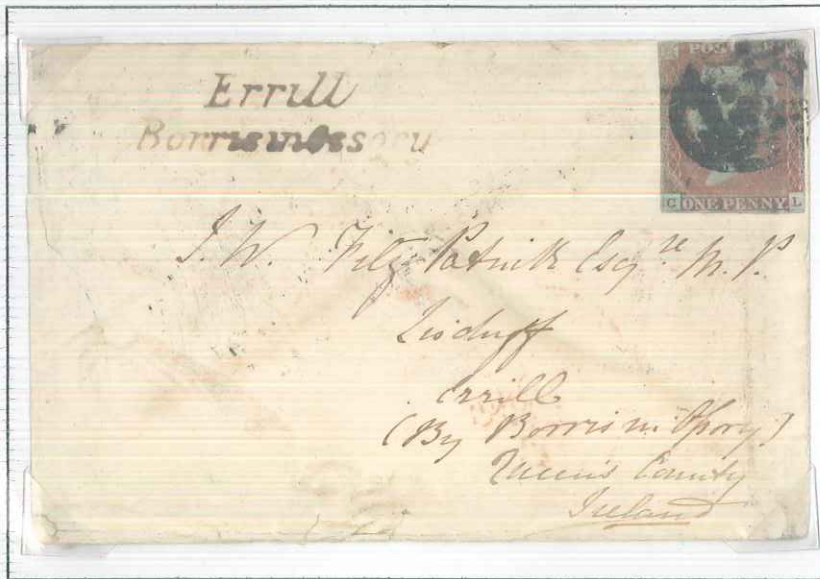 Errill
Borrisinossory
POSTAGE
C ONE PENNY L
J. W. Fitz Patrick Esqre M. P.
Lisduff
Errill
(By Borris in Ossory)
Queens County
Ireland